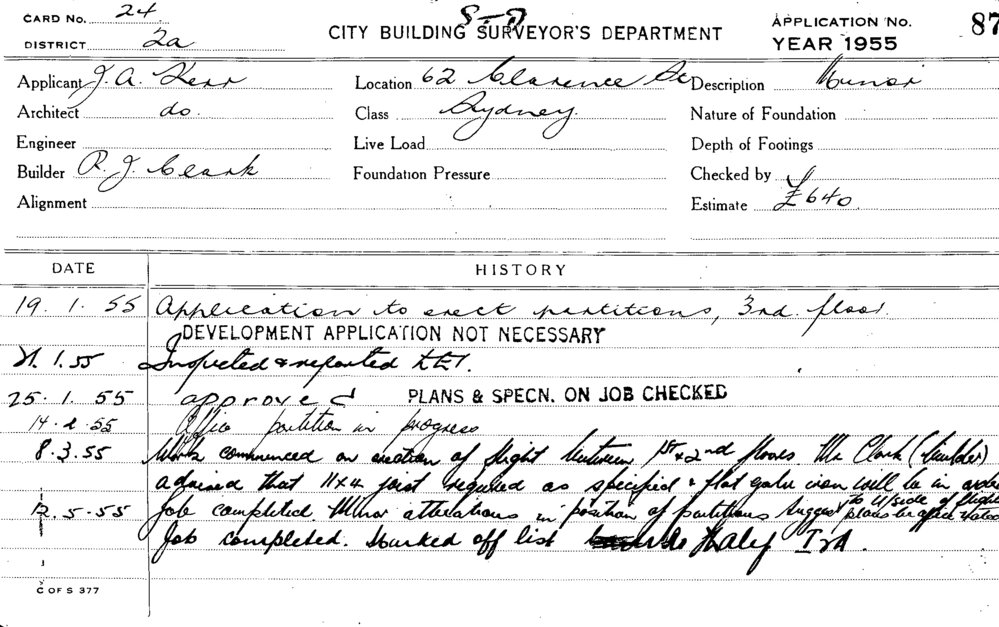 CARD No. 24
S-D
CITY BUILDING SURVEYOR'S DEPARTMENT
APPLICATION No. 87
DISTRICT 2a
YEAR 1955
Applicant J. A. Kerr Location 62 Clarence St Description Minor
Architect do. Class Sydney. Nature of Foundation
Engineer Live Load Depth of Footings
Builder R. J. Clark Foundation Pressure Checked by
Alignment Estimate £640
DATE HISTORY
19. 1. 55 Application to erect partitions, 3rd. floor
DEVELOPMENT APPLICATION NOT NECESSARY
21. 1. 55 Inspected & reported
25. 1. 55 approved PLANS & SPECN. ON JOB CHECKED
14. 2. 55 Office partition in progress
8. 3. 55 Work commenced on erection of flight between 1st & 2nd floors. Mr Clark (builder)
advised that 11x4 joist required as specified & flat galv iron will be in order
to U/side of flight
12. 5. 55 Job completed. Minor alterations in position of partitions plans be
Job completed. Marked off list
C OF S 377